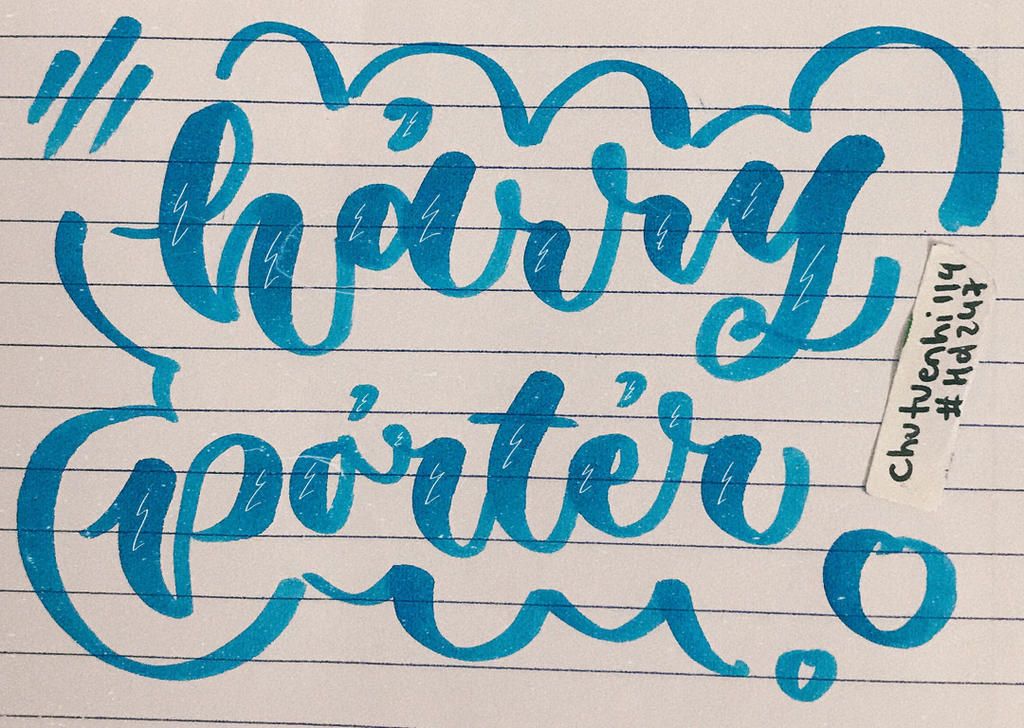 hảrry
pỏrtẻr
chutuenhi1114
#Hd247